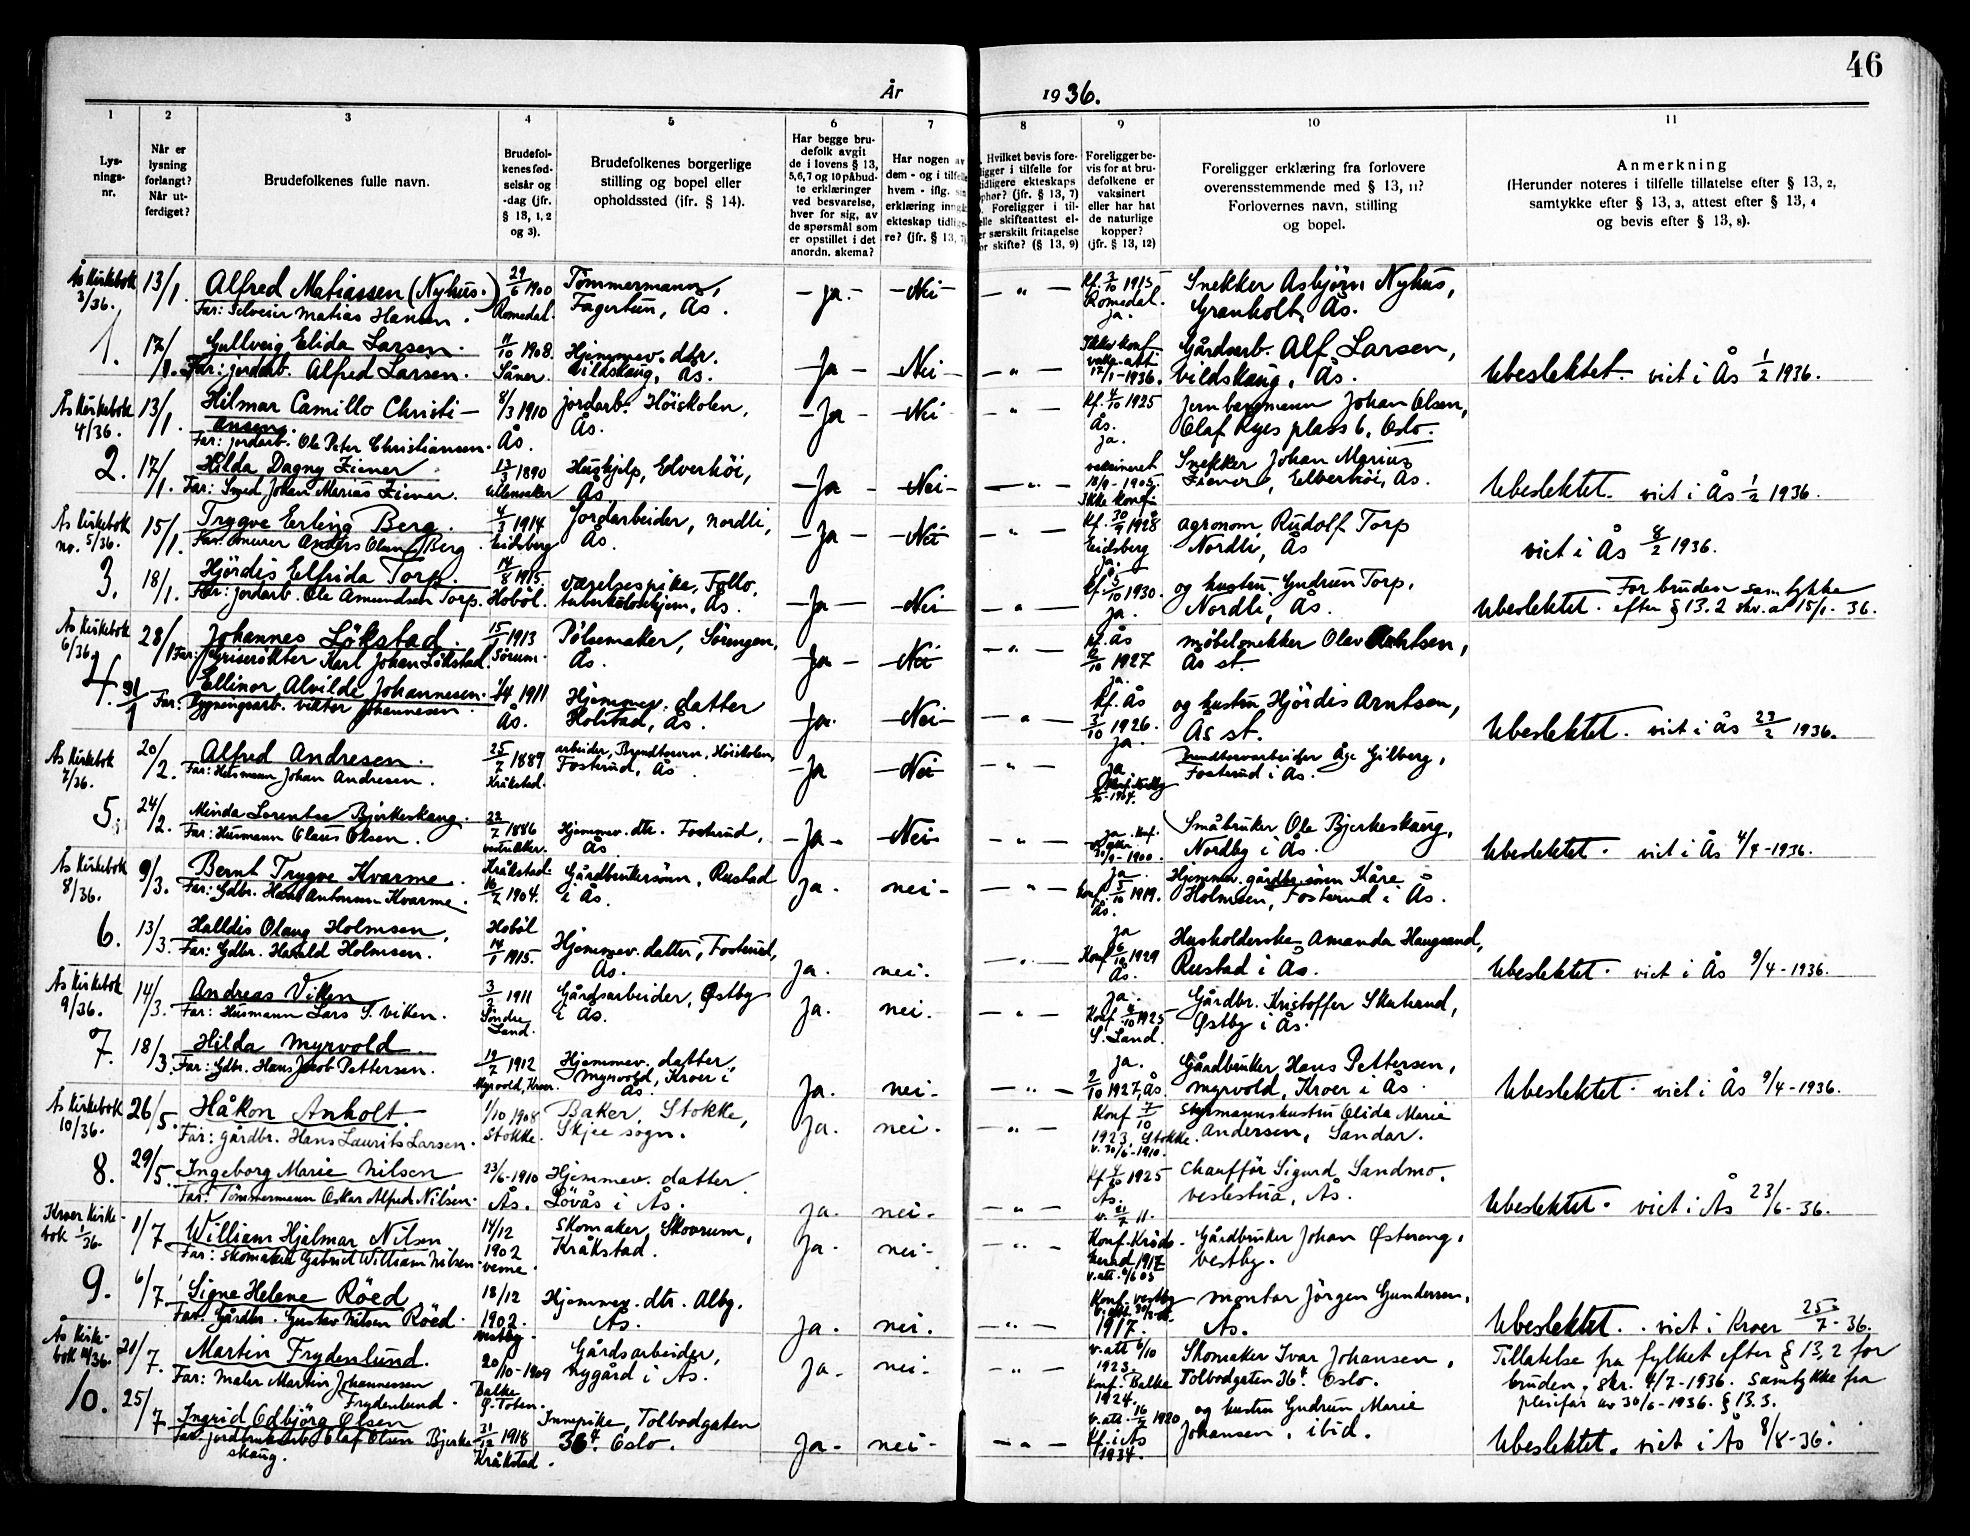 46
År 1936.
1 2 3 4 5 6 7 8 9 10 11
Lys-
nings-
nr.
Når er
lysning
forlangt?
Når ut-
ferdiget?
Brudefolkenes fulle navn.
Brudefol-
kenes fød-
selsår og
-dag (jfr.
§ 13, 1, 2
og 3).
Brudefolkenes borgerlige
stilling og bopel eller
opholdssted (jfr. § 14).
Har begge bru-
defolk avgit
de i lovens § 13,
5,6,7 og 10 påbud-
te erklæringer
ved besvarelse,
hver for sig, av
de spørsmål som
er opstillet i det
anordn. skema?
Har nogen av
dem - og i tilfelle
hvem - iflg.
erklæring inngått
ekteskap tidlige-
re? (jfr. § 13,
Hvilket bevis fore-
ligger i tilfelle for
tidligere ekteskaps
ophør? (jfr. § 13, 7)
Foreligger i til-
elle skifteattest el-
er særskilt fritagelse
or skifte? (§ 13, 9)
Foreligger be-
vis for at bru-
defolkene er
vaksinert
eller har hat
de naturlige
kopper?
(jfr. § 13, 12)
Foreligger erklæring fra forlovere
overensstemmende med § 13, 11?
Forlovernes navn, stilling
og bopel.
Anmerkning
(Herunder noteres i tilfelle tillatelse efter § 13, 2,
samtykke efter § 13, 3, attest efter § 13, 4
og bevis efter § 13, 8).
Ås Kirkebok 3/36. 13/1. Alfred Matiassen (Nyhus.) 29/6 1900 Tømmermann, - Ja. - - Nei - - " - Kf. 3/10 1915 Snekker Asbjørn Nyhus,
Far: Matias Hansen. Romedal. Fagertun, Ås. Romedal. ja. Granholt, Ås.
1. 17/1. Gullveig Elida Larsen. 11/10 1908. Hjemmev. dtr. - Ja - Nei - - " - Ikke konf. Gårdsarb. Alf Larsen,
Far: jordarb. Alfred Larsen. Såner. Vildskaug, Ås. 12/1-1936. Vildskaug, Ås. Ubeslektet. viet i Ås 1/2 1936.
Ås Kirkebok 4/36. 13/1. Hilmar Camillo Christi- 8/3 1910 jordarb. Höiskolen, - Ja - - Nei - " - Kf. 4/10 1925 Jernbanemann Johan Olsen,
ansen. Ås. Ås. Ås. ja. Olaf Ryes plass 6, Oslo.
Far: jordarb. Ole Peter Christiansen.
2. 17/1. Hilda Dagny Ziener 13/3 1890 Hushjelp, Elverhöi, - Ja - - Nei - - " - vaksineret Snekker Johan Marius
Far: Smed Johan Marius Ziener. Ullensaker Ås 18/9-1905. Ikke konf. Ziener, Elverhöi, Ås. Ubeslektet. viet i Ås 1/2 1936.
Ås Kirkebok no. 5/36. 15/1. Trygve Erling Berg. 4/3 1914 Jordarbeider, Nordli, - Ja - - Nei - " - Kf. 30/9 1928 agronom Rudolf Torp
Far: murer Anders Olaus Berg. Eidsberg Ås. Eidsberg Ja. Nordli, Ås viet i Ås 8/2 1936.
3. 18/1. Hjördis Elfrida Torp. 14/8 1915. værelsespike, Follo - Ja - - Nei - - " - Kf. 5/10 1930. og hustru Gudrun Torp, For bruden samtykke
Far: jordarb. Ole Amundsen Torp. Hobøl. tuberkulosehjem, Ås. Ja. Nordli, Ås. Ubeslektet. efter § 13.2 skr. a 15/1-36.
Ås Kirkebok 6/36. 28/1 Johannes Lökstad. 15/1 1913 Pølsemaker, Sörengen, - Ja - - Nei - - " - Kf. Ås møbelsnekker Olav Arntsen,
Far: Griserökter Karl Johan Lökstad. Sørum. Ås. 1927 ja. Ås st.
4. 31/1 Ellinor Alvilde Johannesen. 1/4 1911 Hjemmev. datter - Ja. - Nei - - " - Kf. Ås og hustru Hjördis Arntsen,
Far: Bygningsarb. Viktor Johannesen. Ås. Holstad, Ås. 3/10 1926. Ja. Ås st. Ubeslektet. viet i Ås 23/2 1936.
Ås Kirkebok 7/36. 20/2. Alfred Andresen. 25/7 1889 arbeider, Brendtorvn. Höiskolen, - Ja - Nei - " - ja Brendtorvarbeider Åge Gilberg,
Far: Husmann Johan Andresen. Kråkstad. Fosterud, Ås 1904. Fosterud i Ås.
5. 24/2. Minda Lorentse Bjerkeskaug. 22/7 1886 Hjemmev. dtr. Fosterud, - Ja - Nei - " - ja. Konf. Småbruker Ole Bjerkeskaug,
Far: Husmann Olaus Olsen. Ås 30/9-1900. Nordby i Ås. Ubeslektet. viet i Ås 4/4-1936.
Ås Kirkebok 8/36. 9/3. Bernt Trygve Kvarme. Kråkstad Gårdbrukersönn, Rustad Ja. nei - - " - Ja Hjemmev. gårdbr. sönn Kåre
Far: Gdbr. Hans Antonsen Kvarme. 16/7 1904. i Ås. Konf. 5/10 1919. Ås. Holmsen, Fosterud i Ås.
6. 13/3. Halldis Olaug Holmsen, Hobøl Hjemmev. datter, Fosterud, Ja. nei. - " - ja Husholderske Amanda Haugsand,
Far: Gdbr. Harald Holmsen. 14/1 1915. Ås. Konf. 6/10 1929 Ås. Rustad i Ås. Ubeslektet. viet i Ås 9/4-1936.
Ås Kirkebok 9/36. 14/3. Andreas Viken 3/2 1911 Gårdsarbeider, Østby Ja. nei. - " - ja. Gårdbr. Kristoffer Skutrud,
Far: Husmann Lars S. Viken. Söndre Land. i Ås. Konf. 4/10 1925 S. Land. Østby i Ås.
7. 18/3. Hilda Myrvold. 19/7 1912 Hjemmev. datter, Ja. nei. - " - ja. Gårdbruker Hans Pettersen,
Far: Gdbr. Hans Jacob Pettersen. Myrvold, Kroer. Myrvold, Kroer i Ås. 2/10 1927, Ås Myrvold, Kroer i Ås. Ubeslektet. viet i Ås 9/4-1936.
Ås Kirkebok 10/36. 26/5. Håkon Anholt. 1/10 1908 Baker, Stokke, Ja. nei. - " - Konf. 7/10 Styrmannshustru Olida Marie
Far: gårdbr. Hans Laurits Larsen. Stokke. Skjee sogn. 1923, Stokke. v. 30/6-1910. Andersen, Sandar.
8. 29/5. Ingeborg Marie Nilsen 23/6-1910 Hjemmev. datter Ja. nei. - " - Kf. 4/10 1925 Chauffør Sigurd Sandmo,
Far: Tömmermann Oskar Alfred Nilsen. Ås. Lövås i Ås. Ås. v. 21/7 11. Veslestua, Ås. Ubeslektet. viet i Ås 23/6-36.
Kroer Kirke-
bok 1/36. 1/7 William Hjalmar Nilsen 14/12 Skomaker, Skovrum, Ja. nei. - " - Konf. Kråke- Gårdbruker Johan Østereng,
Far: Skomaker Gabriel William Nilsen. 1902 Kråkstad. 1917 Vestby.
9. 6/7 Signe Helene Röed 18/12 Hjemmev. dtr. Alby, Ja. nei. - " - Konf. Vestby montør Jörgen Gundersen,
Far: Gårdbr. Gustav Nilsen Röed. 1902. Vestby. Ås. 1917. Ås. Ubeslektet. viet i Kroer 25/7-36.
Ås Kirke-
bok 11/36. 21/7. Martin Frydenlund. 20/10-1909 Gårdsarbeider, Ja. nei. - " - v. att. 6/10 Skomaker Ivar Johansen, Tillatelse fra fylket efter § 13, 2 for
Far: Maler Martin Johannessen Frydenlund. Balke Ø. Toten. Nygård i Ås. 1923. Konf. Balke 1924. Tolbodgaten 36⁴ Oslo. bruden, skr. 4/7-1936. Samtykke fra
10. 25/7. Ingrid Odbjörg Olsen 31/12 1918 Innepike, Tolbodgaten Ja. nei. - " - v. att. 16/7 1920 og hustru Gudrun Marie pleifar av 30/6-1936. § 13.3.
Far: jordbruksarb. Olaf Olsen Bjerke- Kråkstad. 36⁴. Oslo. Kf. i Ås 1934. Johansen, ibid. Ubeslektet. viet i Ås 8/8-36.
skaug.